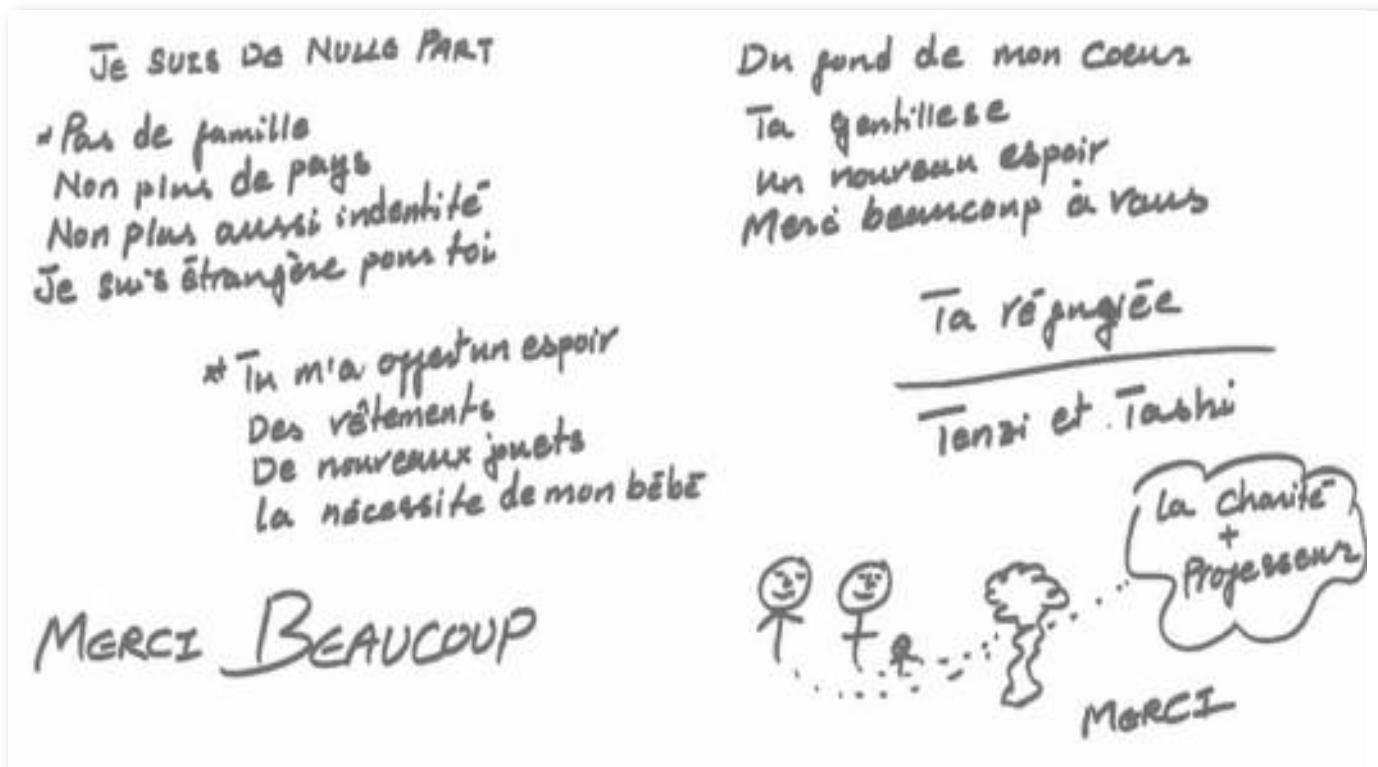 JE SUIS DE NULLE PART
*Pas de famille
Non plus de pays
Non plus aussi indentité
Je suis étrangère pour toi
** Tu m'a offert un espoir
Des vêtements
De nouveaux jouets
la nécessite de mon bébé
MERCI BEAUCOUP
Du fond de mon coeur
Ta gentillese
un nouveau espoir
Merci beaucoup à vous
Ta réfugiée
Tenzi et Tashi
La charité
+
Professeur
MERCI